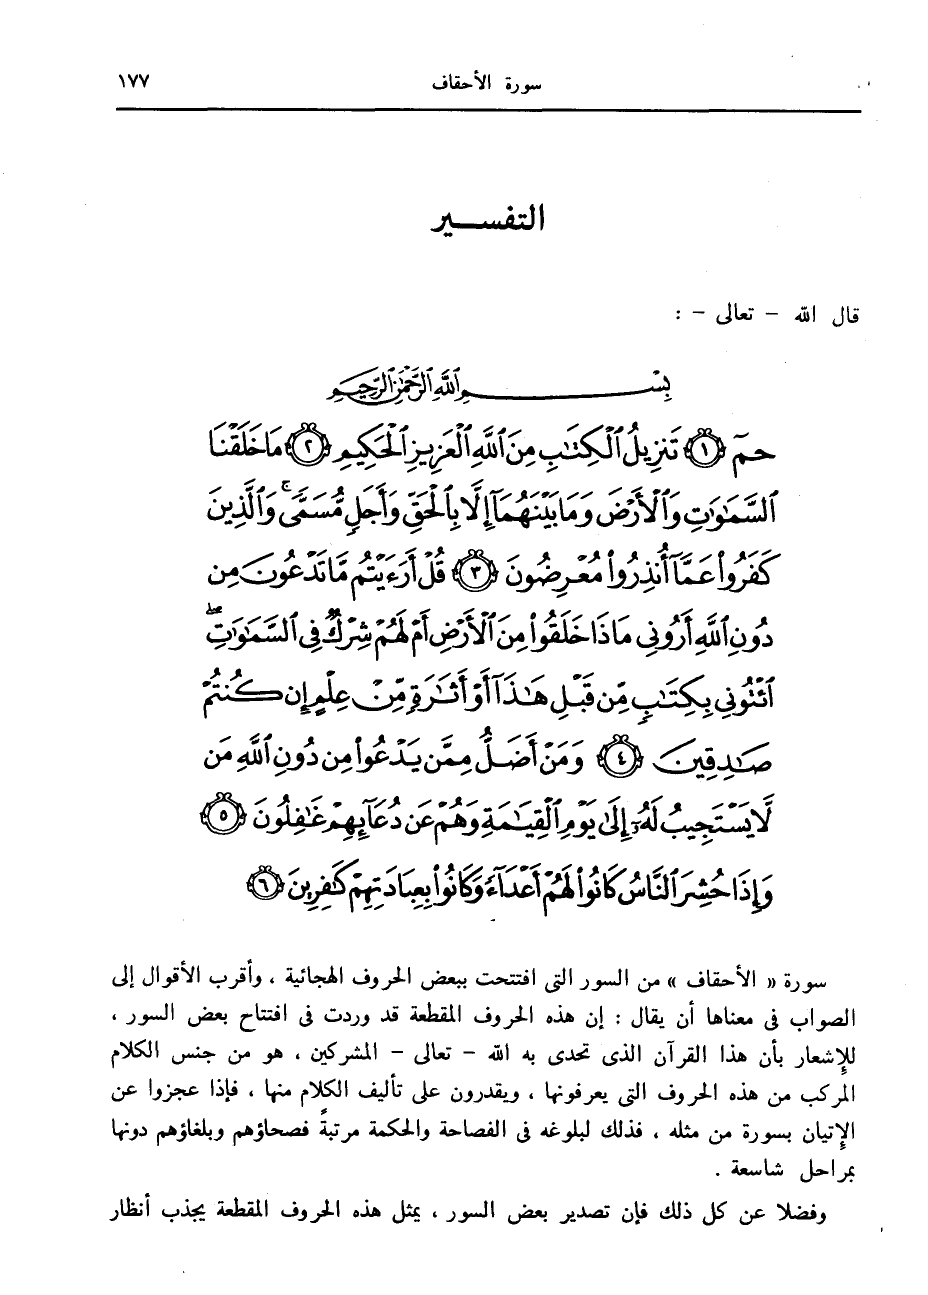 سورة الأحقاف ١٧٧
التفسير
قال الله - تعالى - :
بِسْمِ اللَّهِ الرَّحْمَٰنِ الرَّحِيمِ
حمٓ ﴿١﴾ تَنزِيلُ ٱلْكِتَٰبِ مِنَ ٱللَّهِ ٱلْعَزِيزِ ٱلْحَكِيمِ ﴿٢﴾ مَا خَلَقْنَا
ٱلسَّمَٰوَٰتِ وَٱلْأَرْضَ وَمَا بَيْنَهُمَآ إِلَّا بِٱلْحَقِّ وَأَجَلٍ مُّسَمًّى ۚ وَٱلَّذِينَ
كَفَرُوا۟ عَمَّآ أُنذِرُوا۟ مُعْرِضُونَ ﴿٣﴾ قُلْ أَرَءَيْتُم مَّا تَدْعُونَ مِن
دُونِ ٱللَّهِ أَرُونِى مَاذَا خَلَقُوا۟ مِنَ ٱلْأَرْضِ أَمْ لَهُمْ شِرْكٌ فِى ٱلسَّمَٰوَٰتِ ۖ
ٱئْتُونِى بِكِتَٰبٍ مِّن قَبْلِ هَٰذَآ أَوْ أَثَٰرَةٍ مِّنْ عِلْمٍ إِن كُنتُمْ
صَٰدِقِينَ ﴿٤﴾ وَمَنْ أَضَلُّ مِمَّن يَدْعُوا۟ مِن دُونِ ٱللَّهِ مَن
لَّا يَسْتَجِيبُ لَهُۥٓ إِلَىٰ يَوْمِ ٱلْقِيَٰمَةِ وَهُمْ عَن دُعَآئِهِمْ غَٰفِلُونَ ﴿٥﴾
وَإِذَا حُشِرَ ٱلنَّاسُ كَانُوا۟ لَهُمْ أَعْدَآءً وَكَانُوا۟ بِعِبَادَتِهِمْ كَٰفِرِينَ ﴿٦﴾
سورة « الأحقاف » من السور التى افتتحت ببعض الحروف الهجائية ، وأقرب الأقوال إلى
الصواب فى معناها أن يقال : إن هذه الحروف المقطعة قد وردت فى افتتاح بعض السور ،
للإِشعار بأن هذا القرآن الذى تحدى به الله - تعالى - المشركين ، هو من جنس الكلام
المركب من هذه الحروف التى يعرفونها ، ويقدرون على تأليف الكلام منها ، فإذا عجزوا عن
الإِتيان بسورة من مثله ، فذلك لبلوغه فى الفصاحة والحكمة مرتبةً فصحاؤهم وبلغاؤهم دونها
بمراحل شاسعة .
وفضلا عن كل ذلك فإن تصدير بعض السور ، يمثل هذه الحروف المقطعة يجذب أنظار